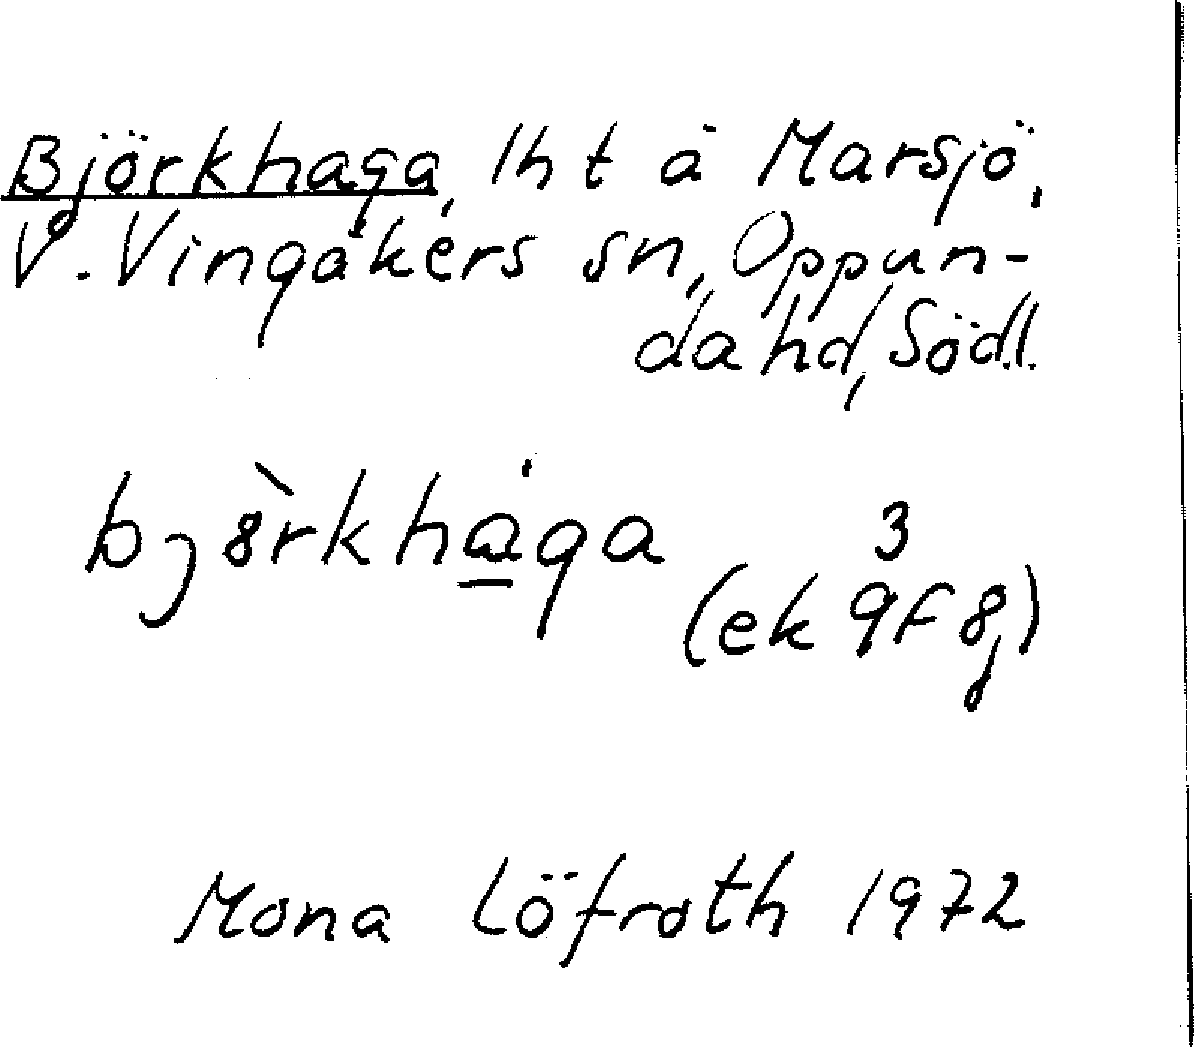 Björkhaga, lht å Marsjö,
V. Vingåkers sn, Oppun-
da hd, Södl.
bj8̀rkha̲̍ga
3
(ek 9F 8j)
Mona Löfroth 1972